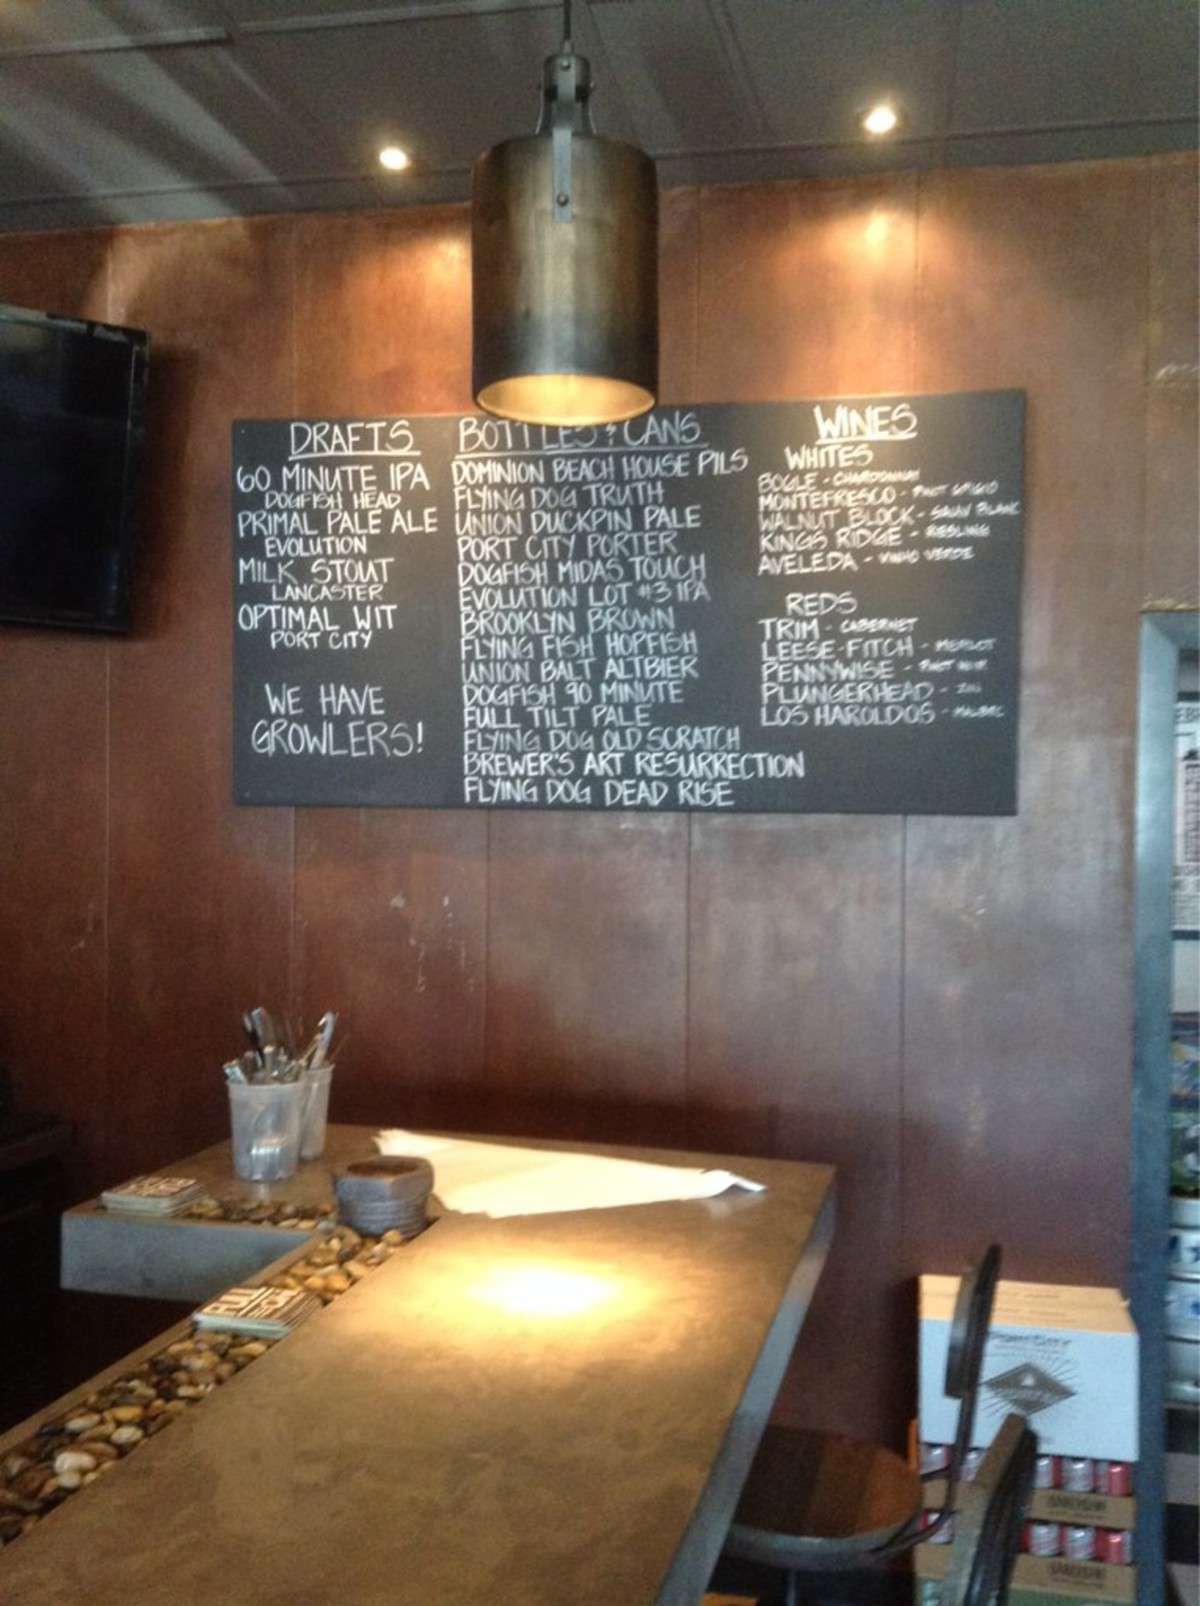 DRAFTS
60 MINUTE IPA
DOGFISH HEAD
PRIMAL PALE ALE
EVOLUTION
MILK STOUT
LANCASTER
OPTIMAL WIT
PORT CITY
WE HAVE
GROWLERS!
BOTTLES & CANS
DOMINION BEACH HOUSE PILS
FLYING DOG TRUTH
UNION DUCKPIN PALE
PORT CITY PORTER
DOGFISH MIDAS TOUCH
EVOLUTION LOT #3 IPA
BROOKLYN BROWN
FLYING FISH HOPFISH
UNION BALT ALTBIER
DOGFISH 90 MINUTE
FULL TILT PALE
FLYING DOG OLD SCRATCH
BREWER'S ART RESURRECTION
FLYING DOG DEAD RISE
WINES
WHITES
BOGLE - CHARDONNAY
MONTEFRESCO - PINOT GRIGIO
WALNUT BLOCK - SAUV BLANC
KINGS RIDGE - RIESLING
AVELEDA - VINHO VERDE
REDS
TRIM - CABERNET
LEESE-FITCH - MERLOT
PENNYWISE - PINOT NOIR
PLUNGERHEAD - ZIN
LOS HAROLDOS - MALBEC